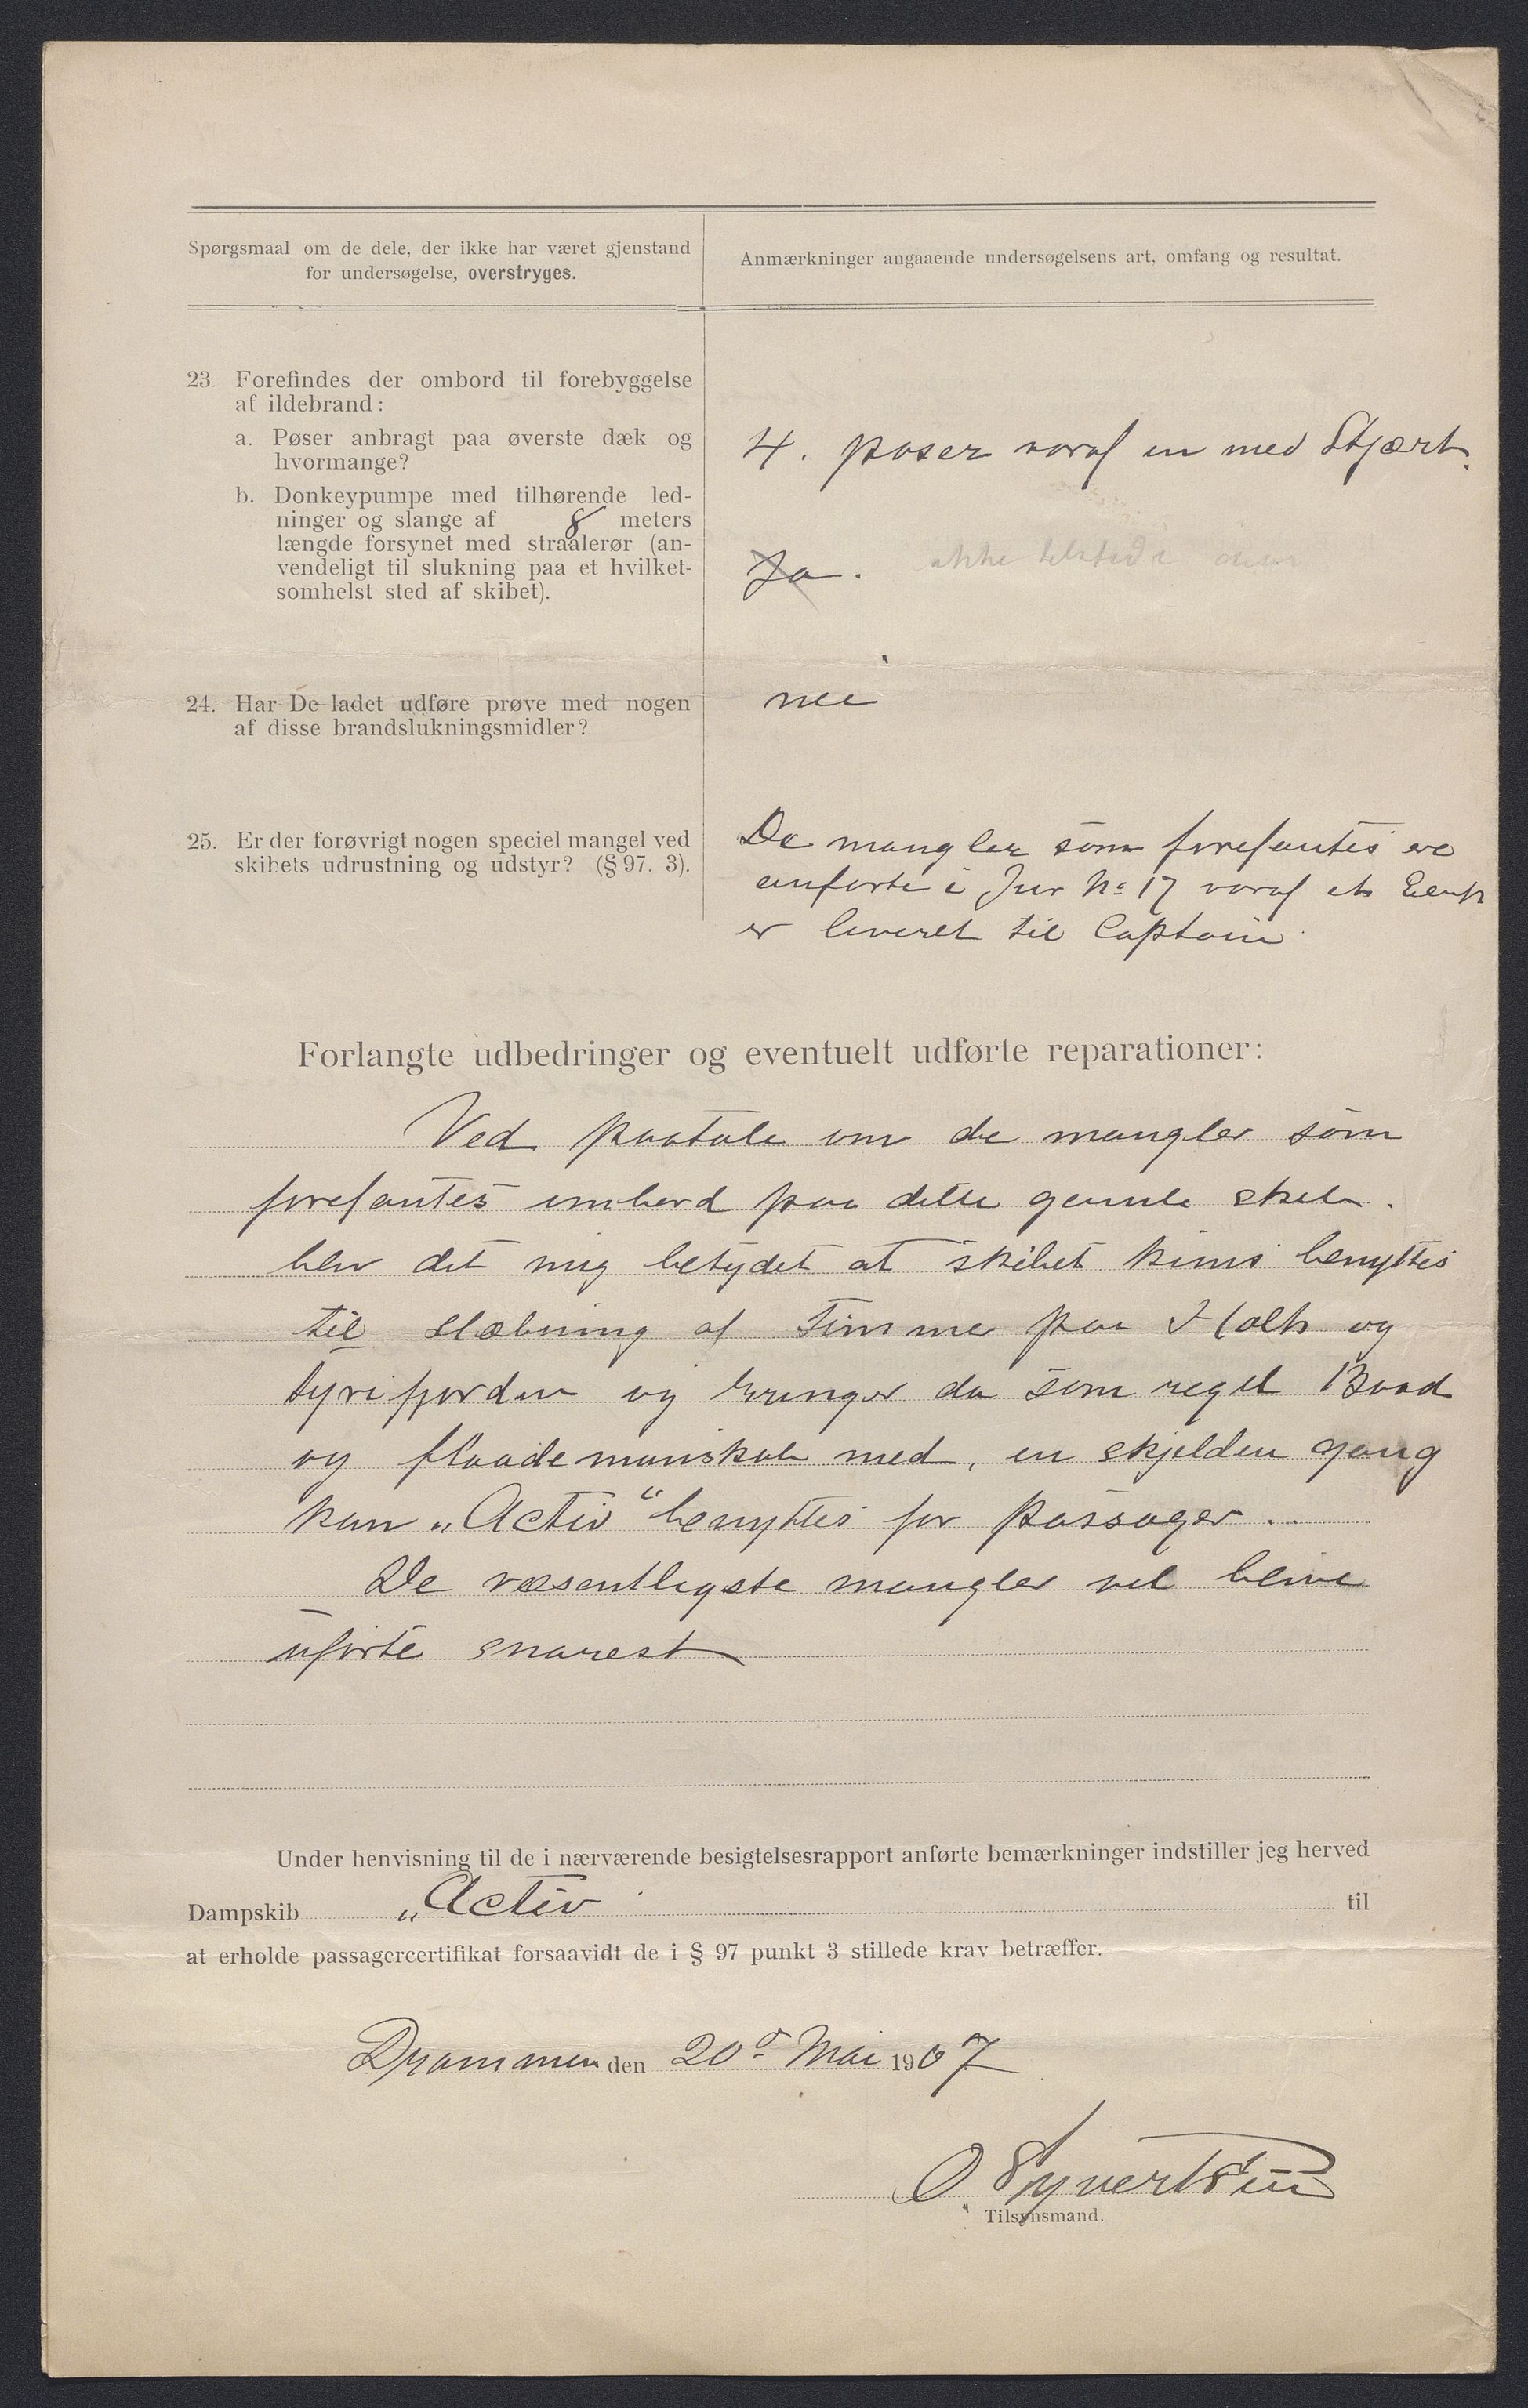 Spørgsmaal om de dele, der ikke har været gjenstand
for undersøgelse, overstryges.
Anmærkninger angaaende undersøgelsens art, omfang og resultat.
23. Forefindes der ombord til forebyggelse
af ildebrand:
a. Pøser anbragt paa øverste dæk og
hvormange?
4. pøser voraf en med Stjært.
b. Donkeypumpe med tilhørende led-
ninger og slange af 8 meters
længde forsynet med straalerør (an-
vendeligt til slukning paa et hvilket-
somhelst sted af skibet).
Ja. ikke tilstede
24. Har De ladet udføre prøve med nogen
af disse brandslukningsmidler?
nei
25. Er der forøvrigt nogen speciel mangel ved
skibets udrustning og udstyr? (§ 97. 3).
De mangler som forefantes er
anførte i Jur No 17 voraf et
er leveret til Captain
Forlangte udbedringer og eventuelt udførte reparationer:
Ved paatale om de mangler som
forefantes ombord paa dette gamle skib.
blev det mig betydet at skibet kuns benyttes
til slæbning af Timmer paa Holls og
tyrifjorden og bringer da som regel Baad
og flaademanskab med, en skjelden gang
kan „Activ" benyttes for passager..
De væsentligste mangler vil blive
uførte snarest
Under henvisning til de i nærværende besigtelsesrapport anførte bemærkninger indstiller jeg herved
Dampskib „Activ til
at erholde passagercertifikat forsaavidt de i § 97 punkt 3 stillede krav betræffer.
Drammen den 20de Mai 1907
O Syvertsen
Tilsynsmand.